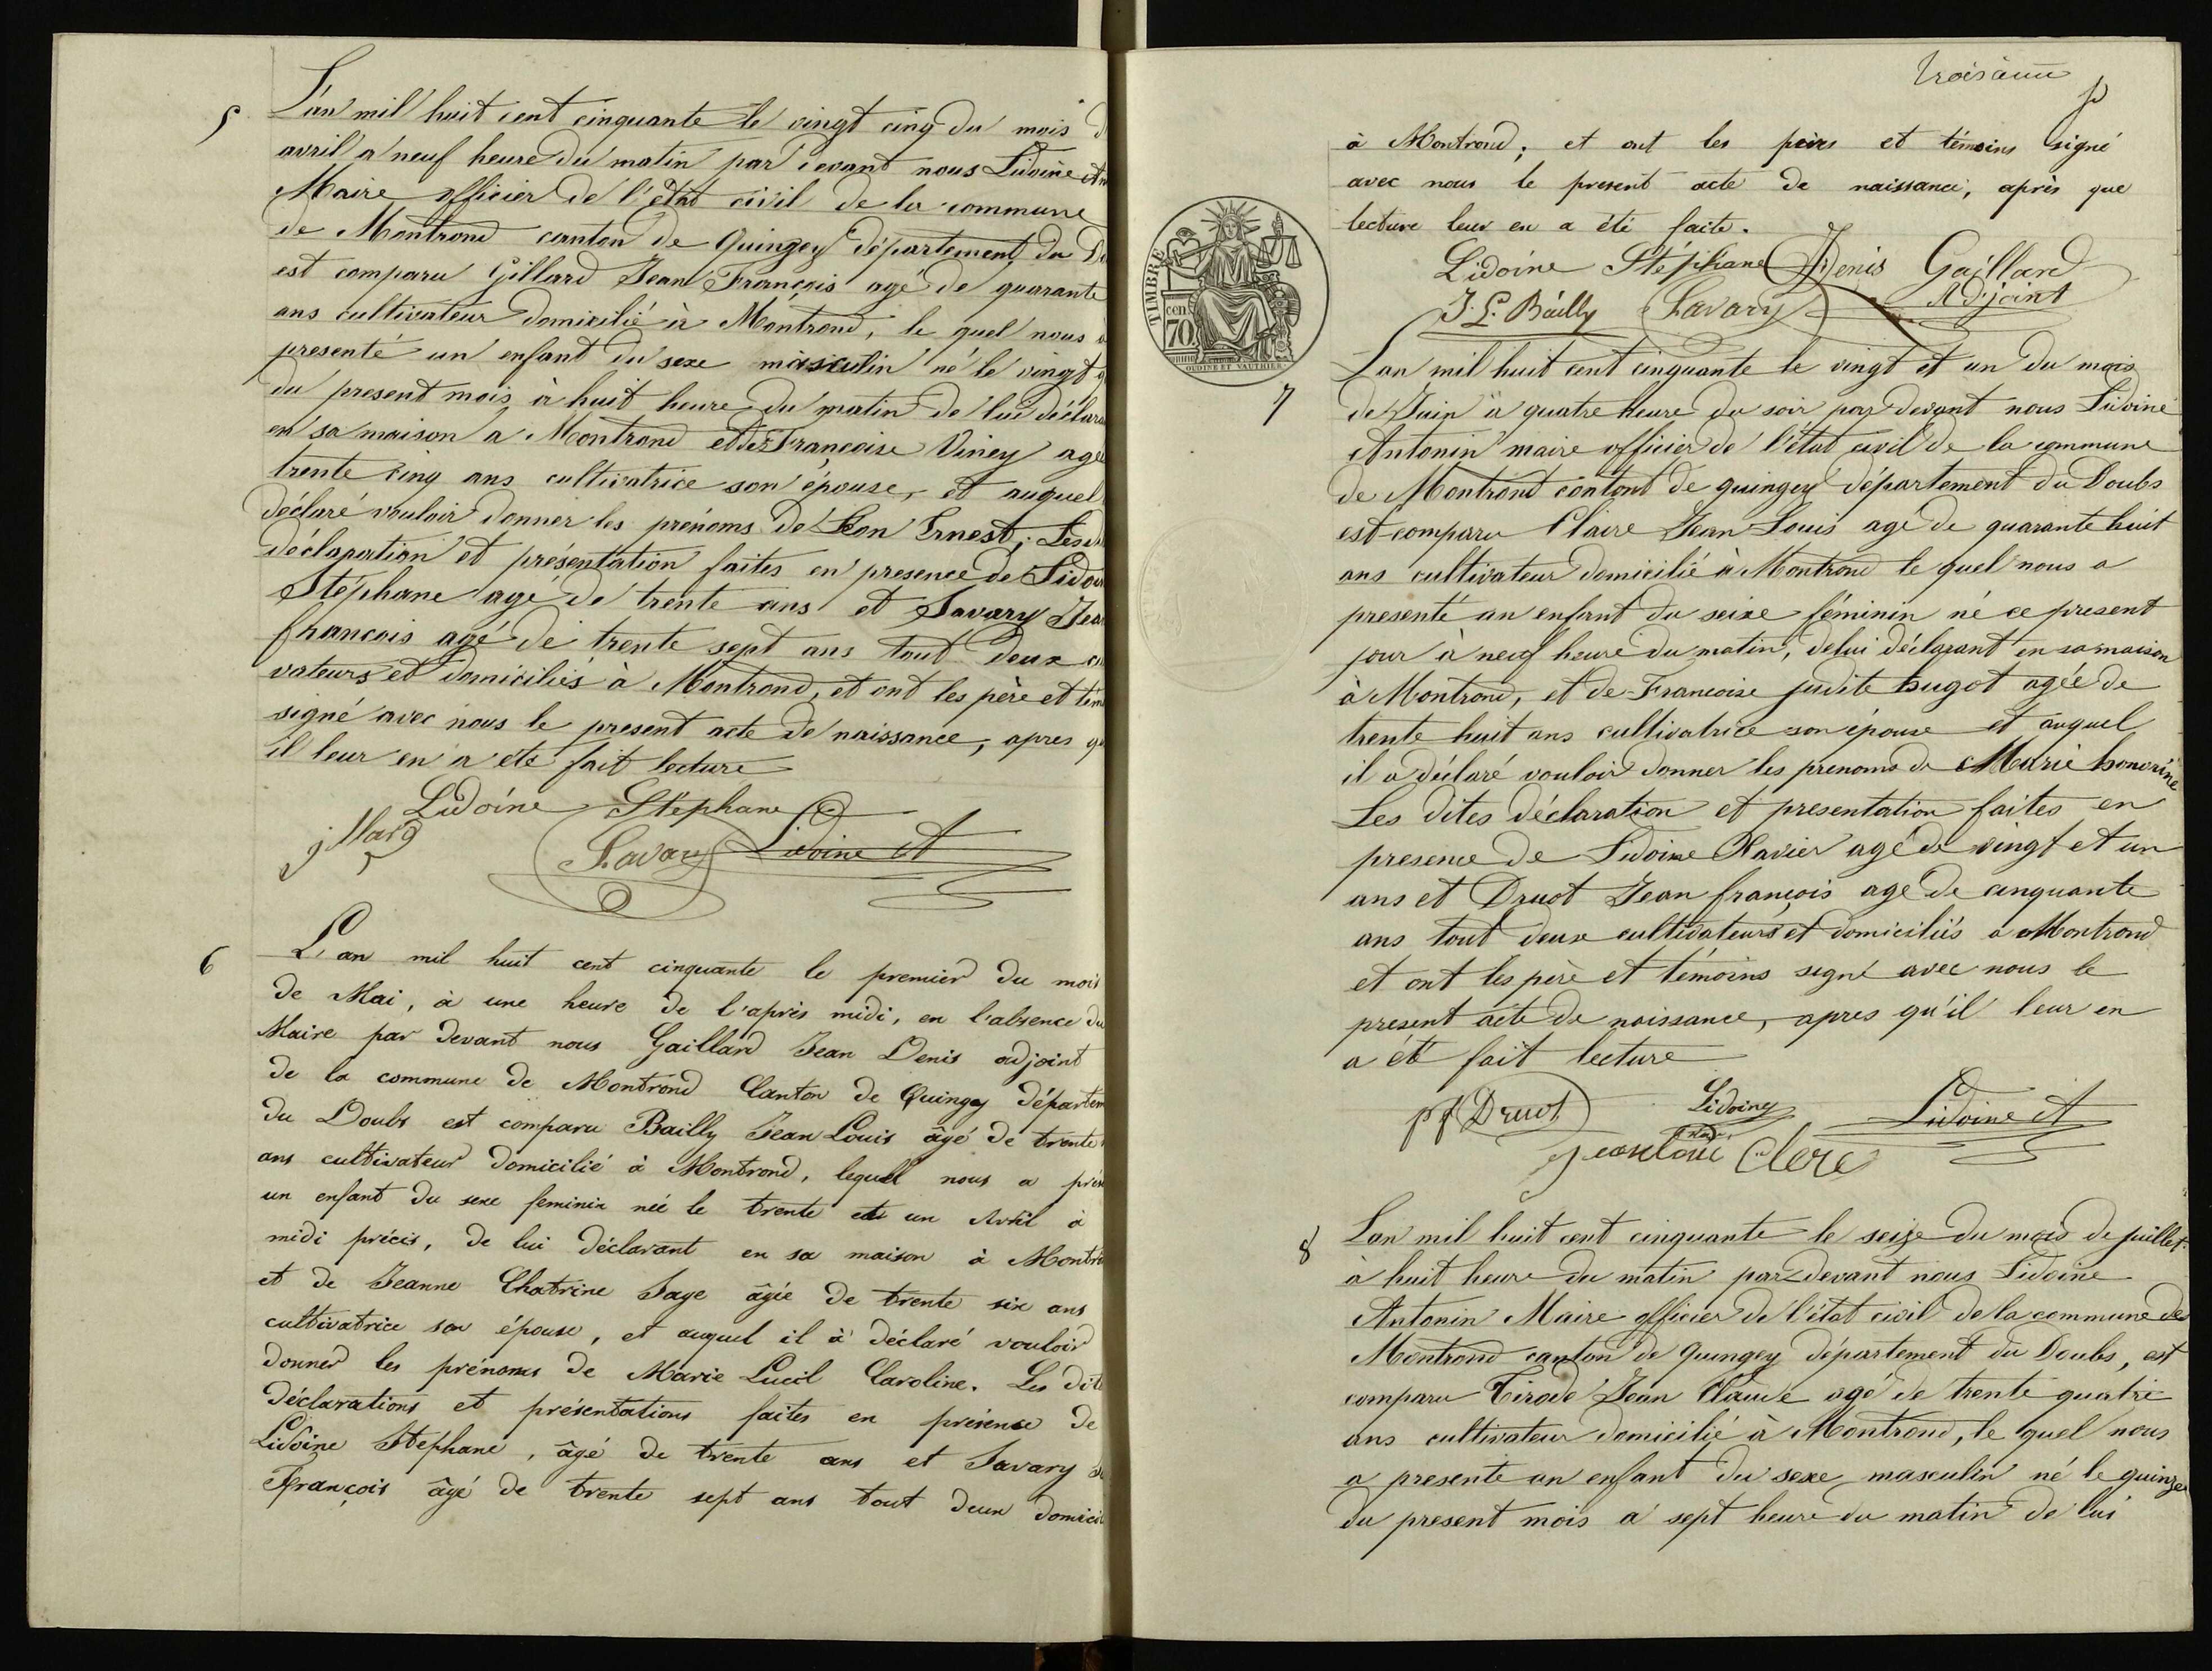 5
L'an mil huit cent cinquante le vingt cinq du mois d
avril a neuf heure du matin par devant nous Lidoine An
Maire officier de l'état civil de la commune
de Montrond canton de Quingey département du D
est comparu Gillard Jean François agé de quarante
ans cultivateur domicilié à Montrond, le quel nous a
presenté un enfant du sexe masculin né le vingt q
du present mois à huit heure du matin de lui déclara
en sa maison a Montrond et de Françoise Viney agé
trente cinq ans cultivatrice son épouse, et auquel
déclaré vouloir donner les prénoms de Léon Ernest; Les d
déclaration et présentation faites en presence de Lidoi
Stéphane agé de trente ans et Savary Jea
francois agé de trente sept ans tout deux cu
vateurs et domiciliés à Montrond, et ont les père et tém
signé avec nous le present acte de naissance, apres qu
il leur en a été fait lecture
Lidoine Stéphane
gillard Savary Lidoine A
6
L'an mil huit cent cinquante le premier du mois
de Mai, à une heure de l'après midi, en l'absence du
Maire par devant nous Gaillard Jean Denis adjoint
de la commune de Montrond Canton de Quingey départem
du Doubs est comparu Bailly Jean Louis âgé de trente
ans cultivateur domicilié à Montrond, lequel nous a prés
un enfant du sexe feminin née le trente et un Avril à
midi précis, de lui déclarant en sa maison à Montro
et de Jeanne Chatrine Sage âgée de trente six ans
cultivatrice son épouse, et auquel il à déclaré vouloir
donner les prénoms de Marie Lucil Caroline. Les dite
Déclarations et présentations faites en présence de
Lidoine Stéphane, âgé de trente ans et Savary
François âgé de trente sept ans tout deux domici
à Montrond; et ont les pères et témoins signé
avec nous le present acte de naissance, après que
lecture leur en a été faite.
Lidoine Stéphane JDenis Gaillard
J. L. Bailly Savary Adjoint
TIMBRE
70
OUDINE ET VAUTHIER
7
L'an mil huit cent cinquante le vingt et un du mois
de Juin à quatre heure du soir par devant nous Lidoine
Antonin maire officier de l'état civil de la commune
de Montrond contont de quingey département du Doubs
est comparu Claire Jean Louis agé de quarante huit
ans cultivateur domicilié à Montrond le quel nous a
presenté un enfant du seixe féminin né ce present
jour à neuf heure du matin, de lui déclarant en sa maison
à Montrond, et de Francoise judite hugot agée de
trente huit ans cultivatrice son épouse et auquel
il a déclaré vouloir donner les prenoms de Marie honorine
Les dites déclaration et presentation faites en
presence de Lidoine Xavier agé de vingt et un
ans et Druot Jean françois age de cinquante
ans tout deux cultivateurs et domiciliés a Montrond
et ont les père et témoins signé avec nous le
present acte de naissance, apres qu'il leur en
a été fait lecture
Druot Lidoine Lidoine A
jeanlouis Clerc
8
L'an mil huit cent cinquante le seize du mois de juillet
à huit heure du matin par devant nous Lidoine
Antonin Maire officier de l'état civil de la commune de
Montrond canton de Quingey département du Doubs, est
comparu Tirode Jean Claude agé de trente quatre
ans cultivateur domicilié à Montrond, le quel nous
a presenté un enfant du sexe masculin né le quinze
du present mois a sept heure du matin de lui